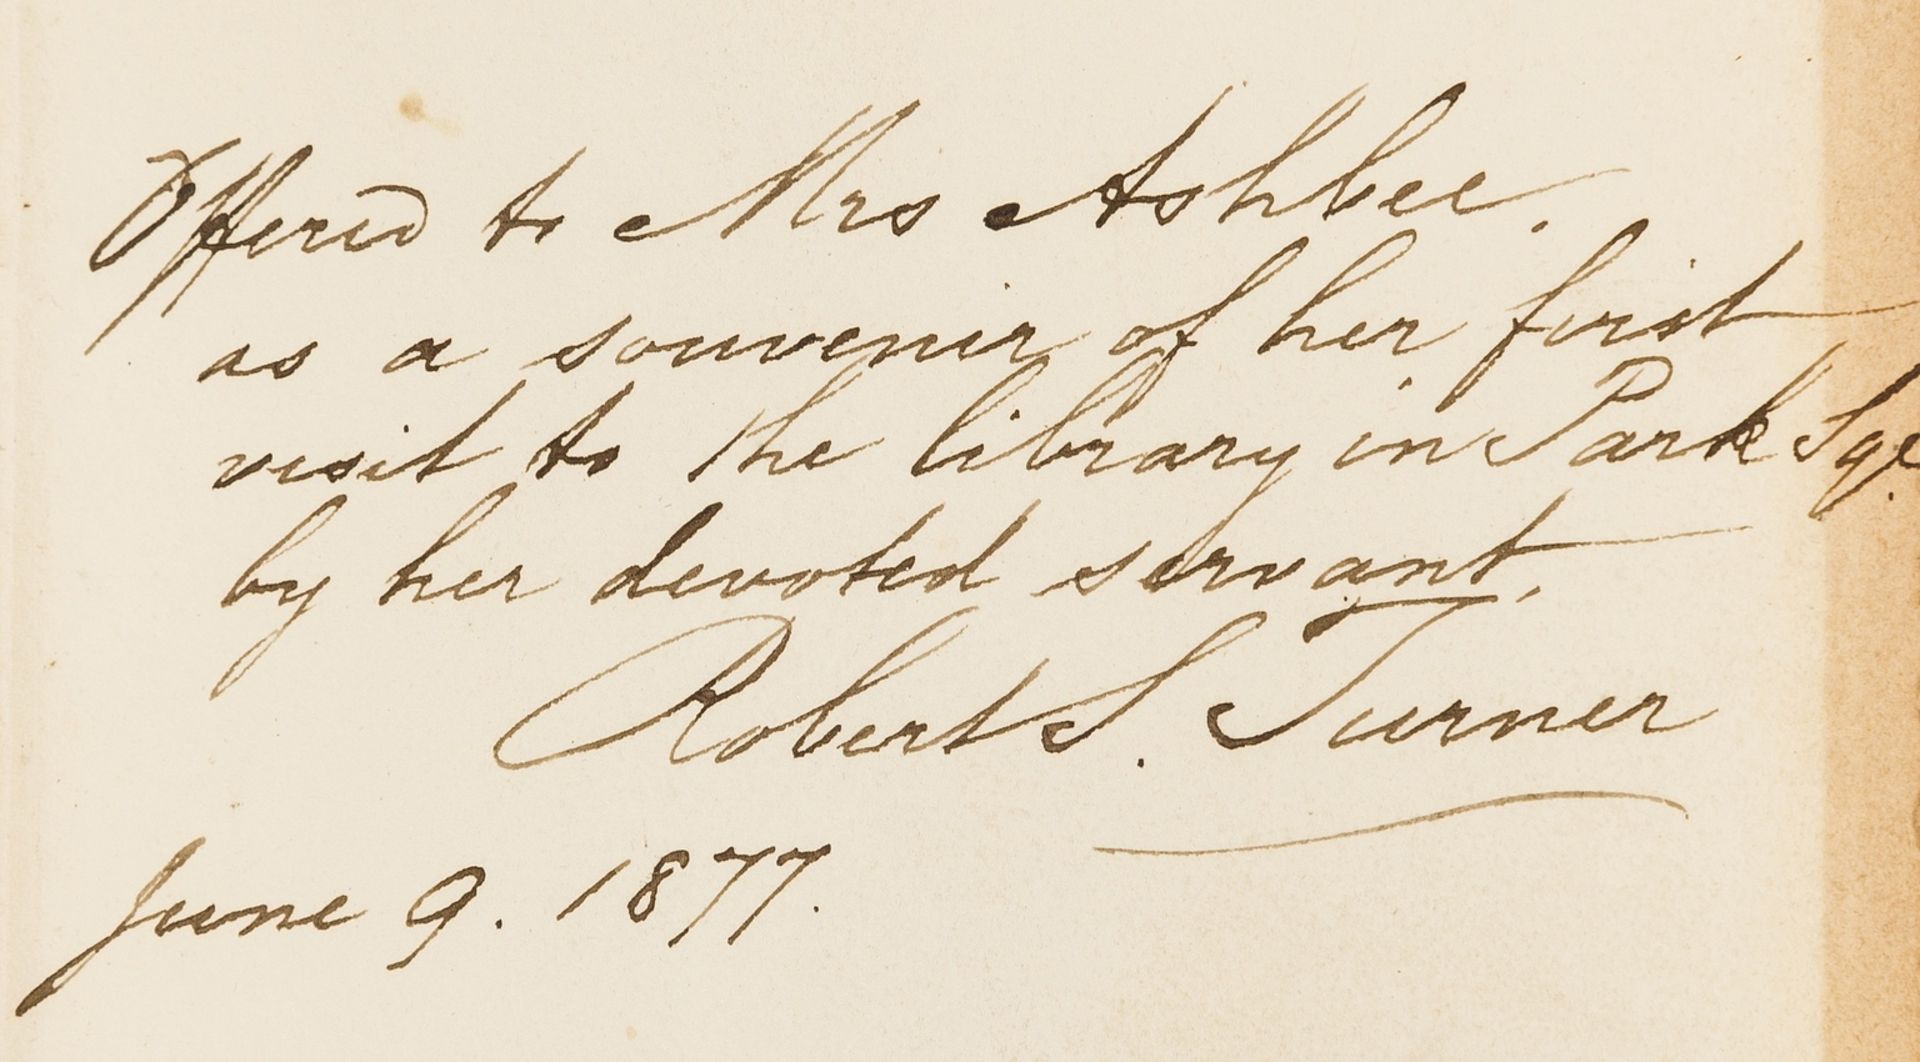 Offered to Mrs Ashbee.
as a souvenir of her first
visit to the library in Park Sqe.
by her devoted servant,
Robert S. Turner
June 9. 1877.